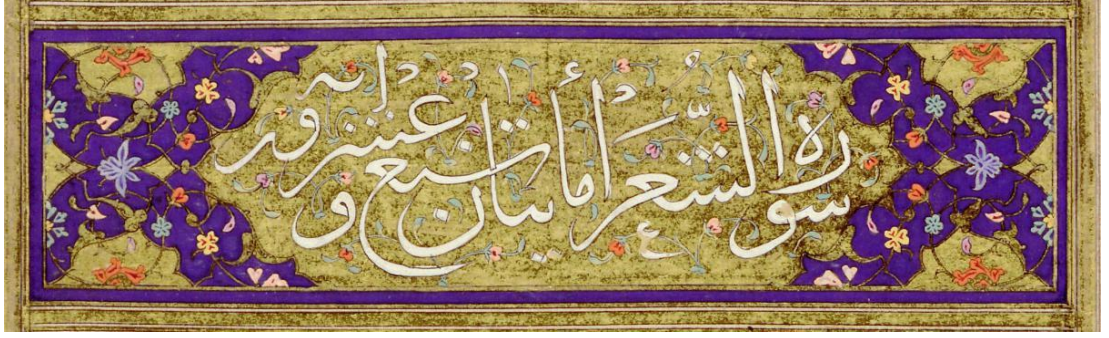 سوره الشعراء مأيتان وسبع وعشرون ايه